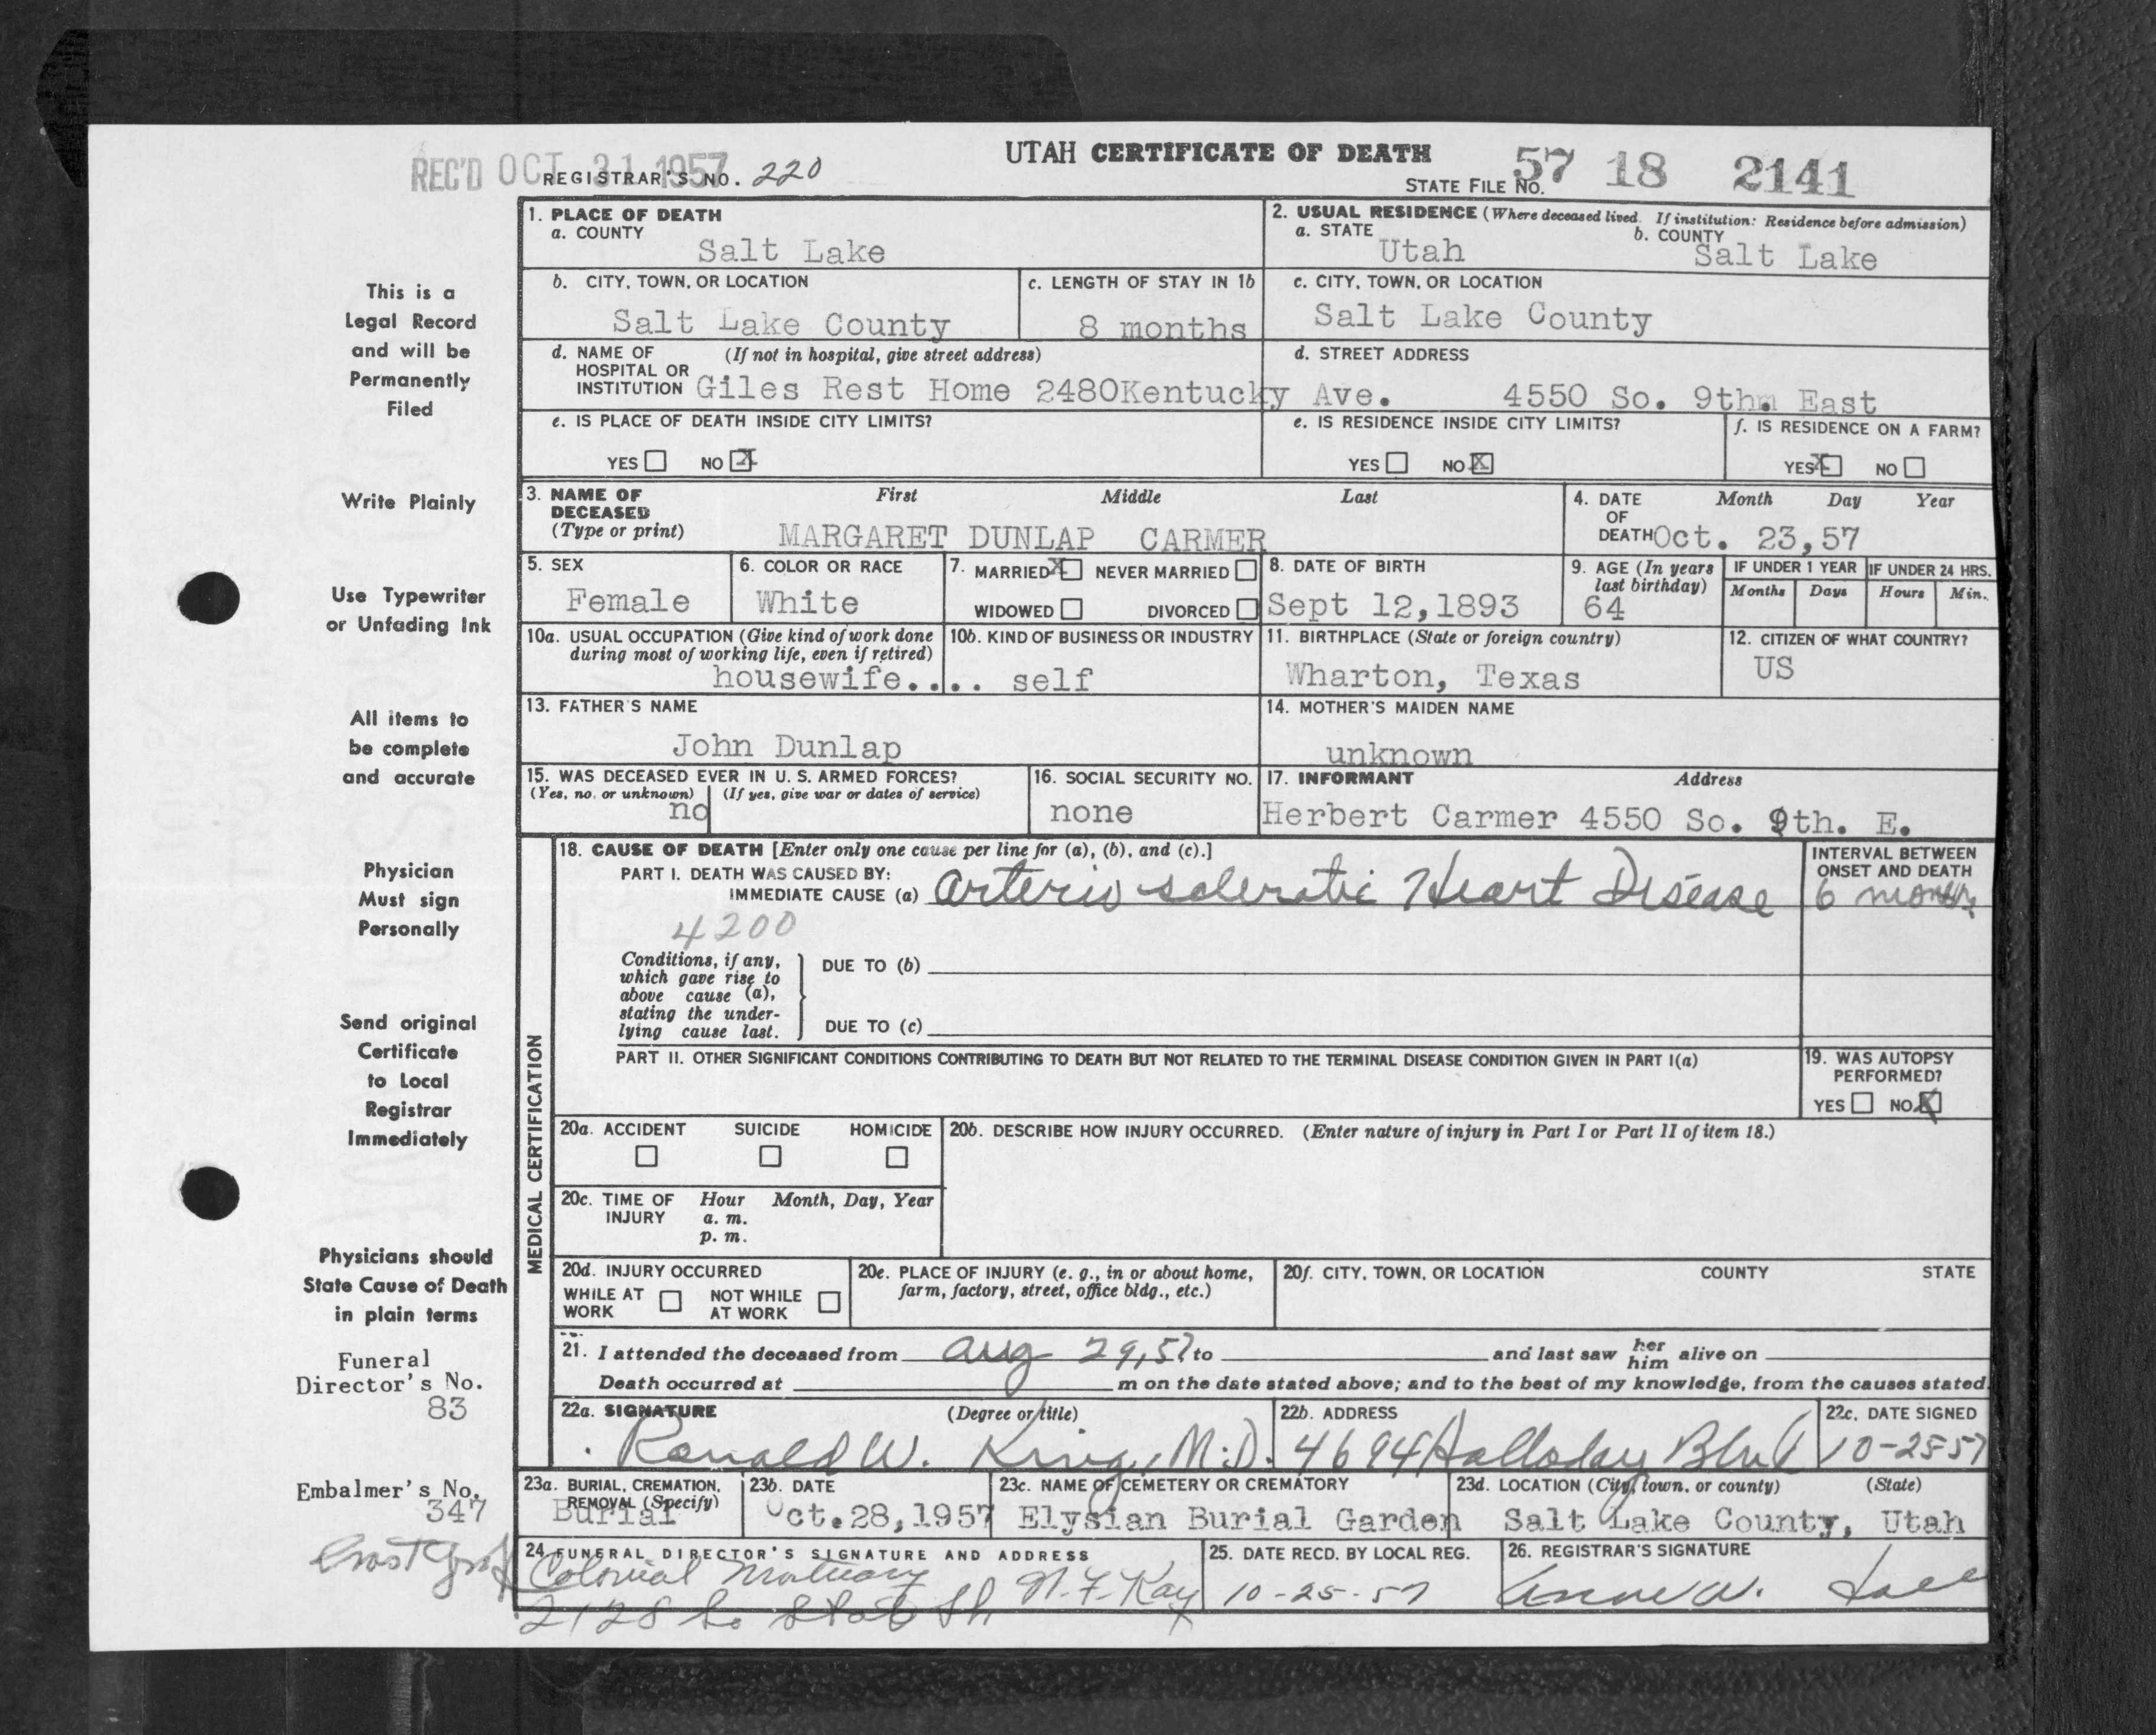 UTAH CERTIFICATE OF DEATH
REC'D OCT 31 1957
REGISTRAR'S NO. 220
STATE FILE NO. 57 18 2141
1. PLACE OF DEATH
a. COUNTY
Salt Lake
2. USUAL RESIDENCE (Where deceased lived. If institution: Residence before admission)
a. STATE
Utah
b. COUNTY
Salt Lake
b. CITY, TOWN, OR LOCATION
Salt Lake County
c. LENGTH OF STAY IN 1b
8 months
c. CITY, TOWN, OR LOCATION
Salt Lake County
d. NAME OF HOSPITAL OR INSTITUTION (If not in hospital, give street address)
Giles Rest Home 2480Kentucky Ave.
d. STREET ADDRESS
4550 So. 9th. East
e. IS PLACE OF DEATH INSIDE CITY LIMITS?
YES NO X
e. IS RESIDENCE INSIDE CITY LIMITS?
YES NO X
f. IS RESIDENCE ON A FARM?
YES X NO
3. NAME OF DECEASED (Type or print)
First Middle Last
MARGARET DUNLAP CARMER
4. DATE OF DEATH
Month Day Year
Oct. 23,57
5. SEX
Female
6. COLOR OR RACE
White
7. MARRIED X NEVER MARRIED
WIDOWED DIVORCED
8. DATE OF BIRTH
Sept 12,1893
9. AGE (In years last birthday)
64
IF UNDER 1 YEAR
Months Days
IF UNDER 24 HRS.
Hours Min.
10a. USUAL OCCUPATION (Give kind of work done during most of working life, even if retired)
housewife....
10b. KIND OF BUSINESS OR INDUSTRY
self
11. BIRTHPLACE (State or foreign country)
Wharton, Texas
12. CITIZEN OF WHAT COUNTRY?
US
13. FATHER'S NAME
John Dunlap
14. MOTHER'S MAIDEN NAME
unknown
15. WAS DECEASED EVER IN U. S. ARMED FORCES?
(Yes, no, or unknown) (If yes, give war or dates of service)
no
16. SOCIAL SECURITY NO.
none
17. INFORMANT Address
Herbert Carmer 4550 So. 9th. E.
MEDICAL CERTIFICATION
18. CAUSE OF DEATH [Enter only one cause per line for (a), (b), and (c).]
PART I. DEATH WAS CAUSED BY:
IMMEDIATE CAUSE (a) Arterio scleratic Heart Disease
INTERVAL BETWEEN ONSET AND DEATH
6 months
4200
Conditions, if any, which gave rise to above cause (a), stating the underlying cause last.
DUE TO (b)
DUE TO (c)
PART II. OTHER SIGNIFICANT CONDITIONS CONTRIBUTING TO DEATH BUT NOT RELATED TO THE TERMINAL DISEASE CONDITION GIVEN IN PART I(a)
19. WAS AUTOPSY PERFORMED?
YES NO X
20a. ACCIDENT SUICIDE HOMICIDE
20b. DESCRIBE HOW INJURY OCCURRED. (Enter nature of injury in Part I or Part II of item 18.)
20c. TIME OF INJURY Hour Month, Day, Year
a. m.
p. m.
20d. INJURY OCCURRED
WHILE AT WORK NOT WHILE AT WORK
20e. PLACE OF INJURY (e. g., in or about home, farm, factory, street, office bldg., etc.)
20f. CITY, TOWN, OR LOCATION COUNTY STATE
21. I attended the deceased from Aug 29, 57 to and last saw her him alive on
Death occurred at m on the date stated above; and to the best of my knowledge, from the causes stated.
22a. SIGNATURE (Degree or title)
Ronald W. King, M.D.
22b. ADDRESS
4694 Holladay Blvd
22c. DATE SIGNED
10-25-57
23a. BURIAL, CREMATION, REMOVAL (Specify)
Burial
23b. DATE
Oct.28,1957
23c. NAME OF CEMETERY OR CREMATORY
Elysian Burial Garden
23d. LOCATION (City, town, or county) (State)
Salt Lake County, Utah
24. FUNERAL DIRECTOR'S SIGNATURE AND ADDRESS
Colonial Mortuary N. F. Kay
2128 So State St
25. DATE RECD. BY LOCAL REG.
10-25-57
26. REGISTRAR'S SIGNATURE
This is a
Legal Record
and will be
Permanently
Filed
Write Plainly
Use Typewriter
or Unfading Ink
All items to
be complete
and accurate
Physician
Must sign
Personally
Send original
Certificate
to Local
Registrar
Immediately
Physicians should
State Cause of Death
in plain terms
Funeral
Director's No.
83
Embalmer's No.
347